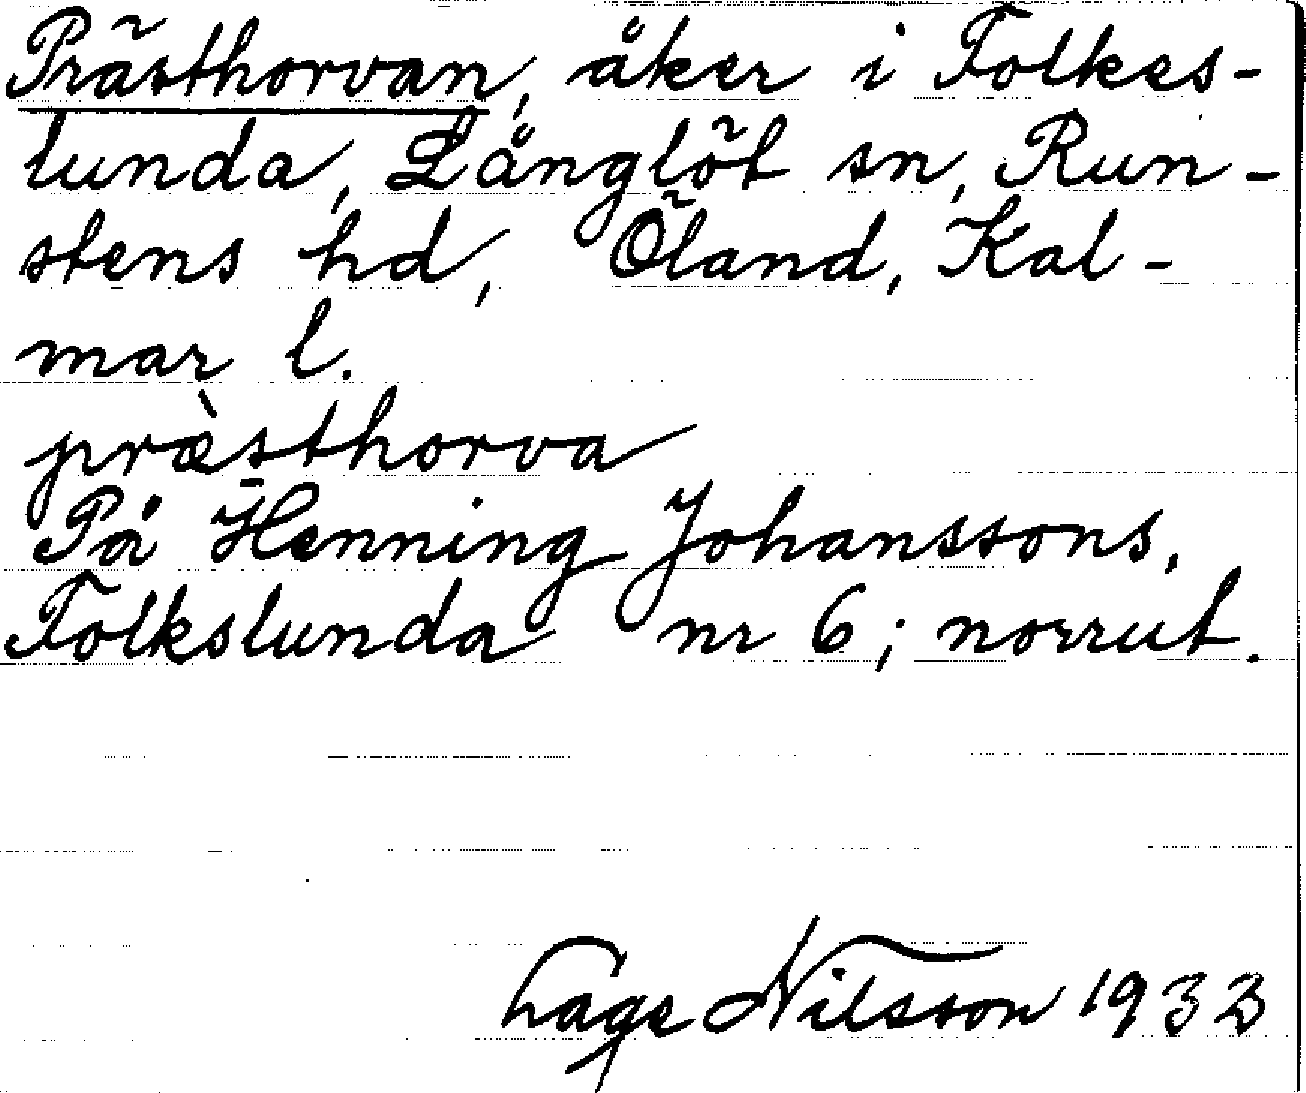 Prästhorvan, åker i Folkes-
lunda, Långlöt sn, Run-
stens hd, Öland, Kal-
mar l.
præ̀sthorva
På Henning Johanssons,
Folkslunda nr 6; norrut.
Lage Nilsson 1933